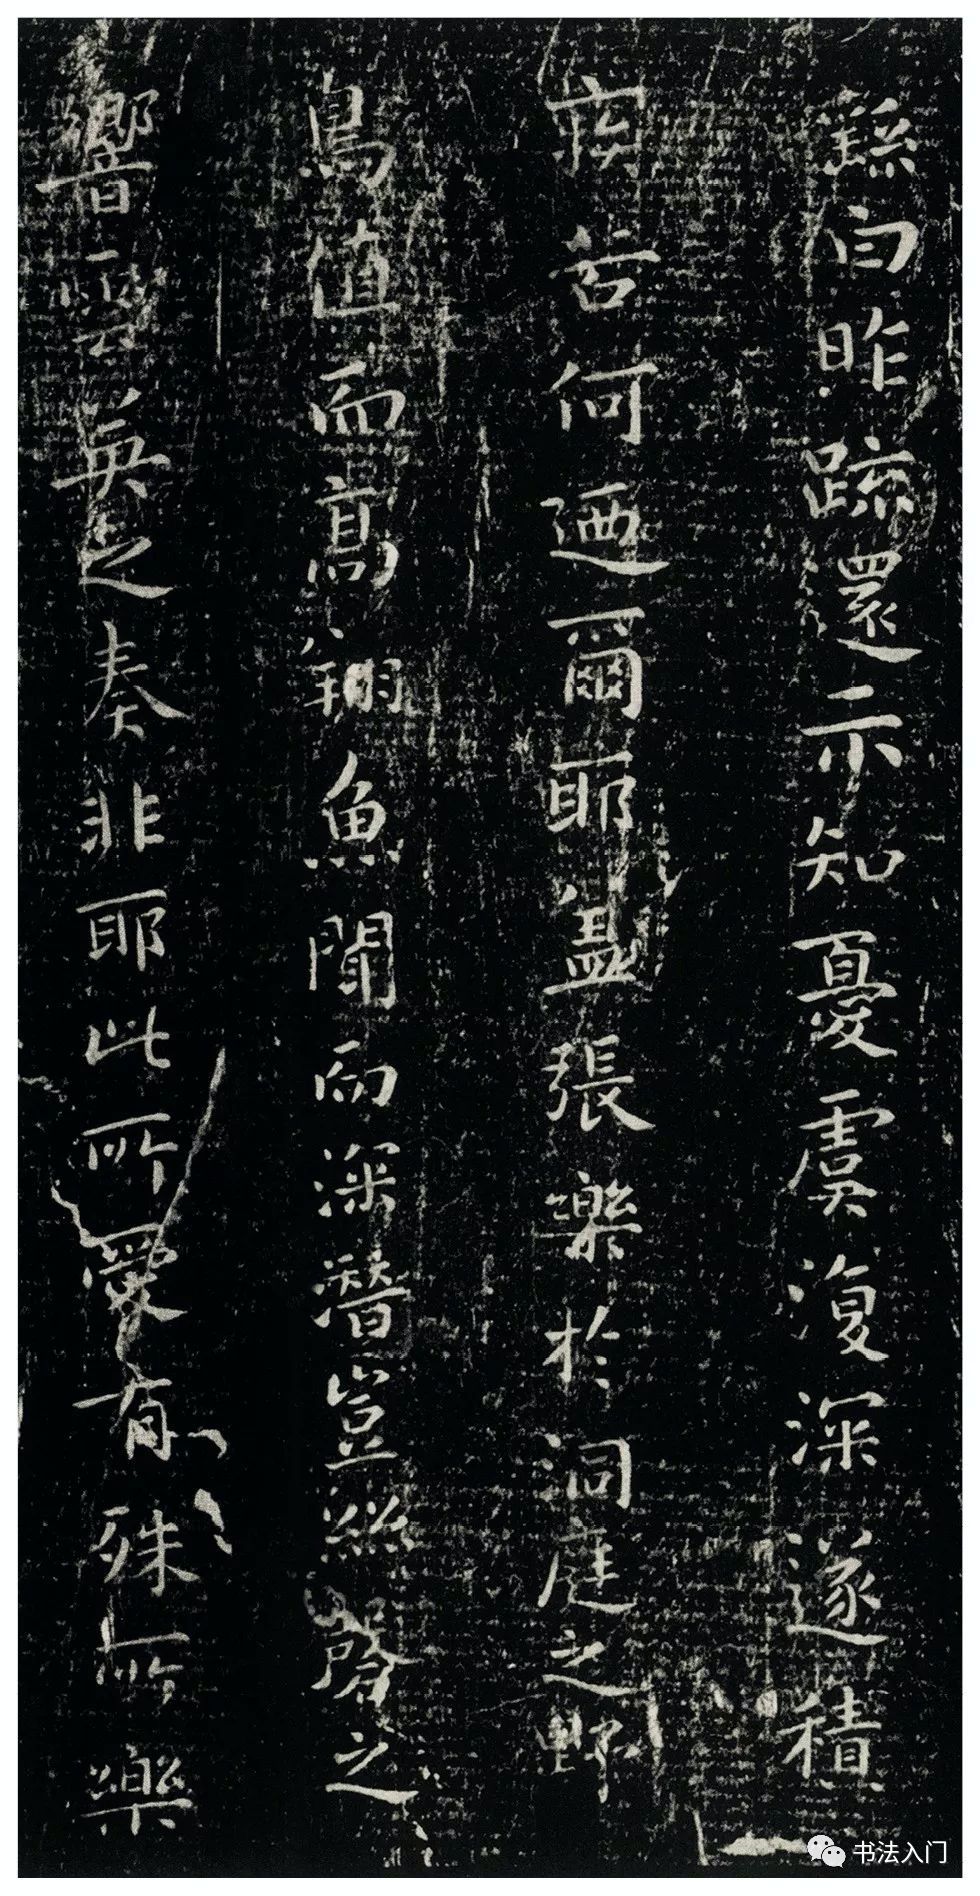 繇白昨疏還示知憂虞復深遂積
疾苦何迺爾耶蓋張樂於洞庭之野
鳥值而高翔魚聞而深潛豈絲磬之
響雲英之奏非耶此所愛有殊所樂
书法入门